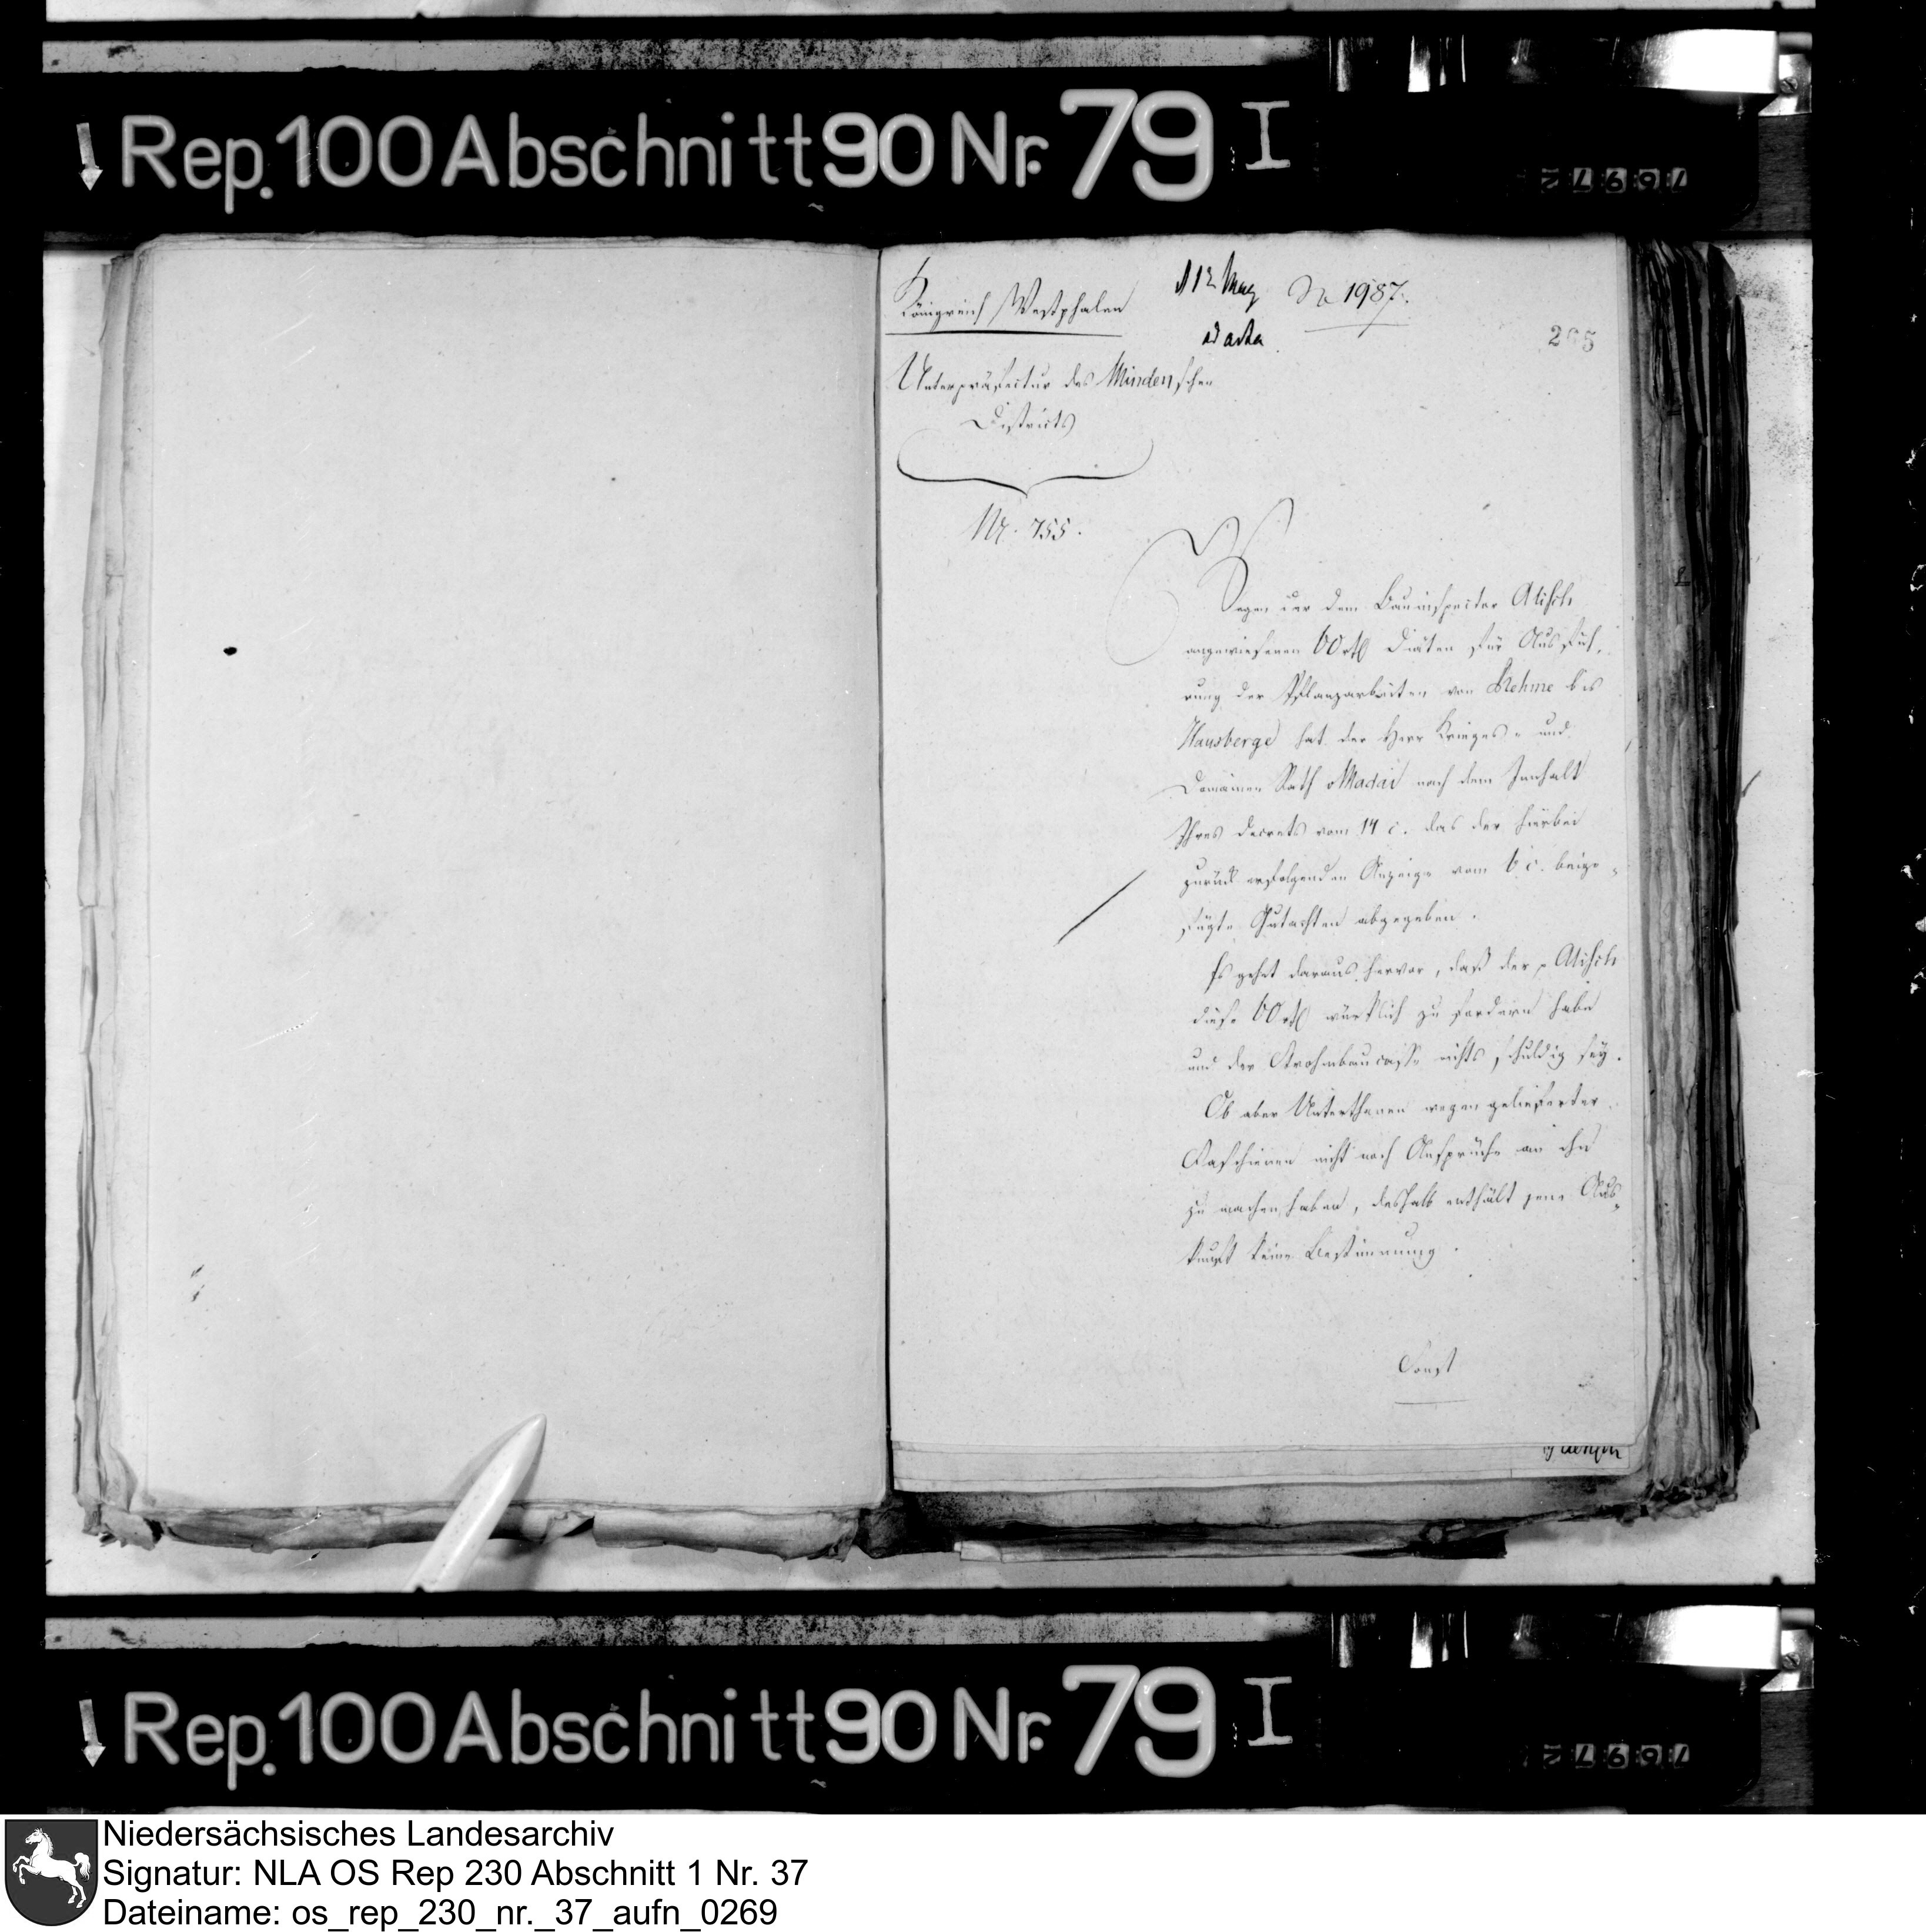 Rep. 100 Abschnitt 90 Nr. 79 I
Königreich Westphalen
12 May No 1987.
ad acta
265
Unterpräfectur des Mindenschen
Districts
Nr. 755.
Wegen der dem Bauinspector
angewiesenen 60 rtl Diäten für Ausfüh-
rung der Pflanzarbeiten von Rehme bis
Hausberge hat der Herr Krieges- und
Domainen Rath v Madai nach dem Innhalt
Ihres Decrets vom 14 c. das der hierbei
zurück erfolgenden Anzeige vom 6 c. beige-
fügte Gutachten abgegeben.
Es gehet daraus hervor, daß der
diese 60 rtl würklich zu fordern habe
und der nichts schuldig sey.
Ob aber Unterthanen wegen gelieferter
Faschienen nicht noch Ansprüche an ihn
zu machen haben, deshalb enthält jene Aus-
kunft keine Bestimmung.
Sonst
Rep. 100 Abschnitt 90 Nr. 79 I
Niedersächsisches Landesarchiv
Signatur: NLA OS Rep 230 Abschnitt 1 Nr. 37
Dateiname: os_rep_230_nr._37_aufn_0269